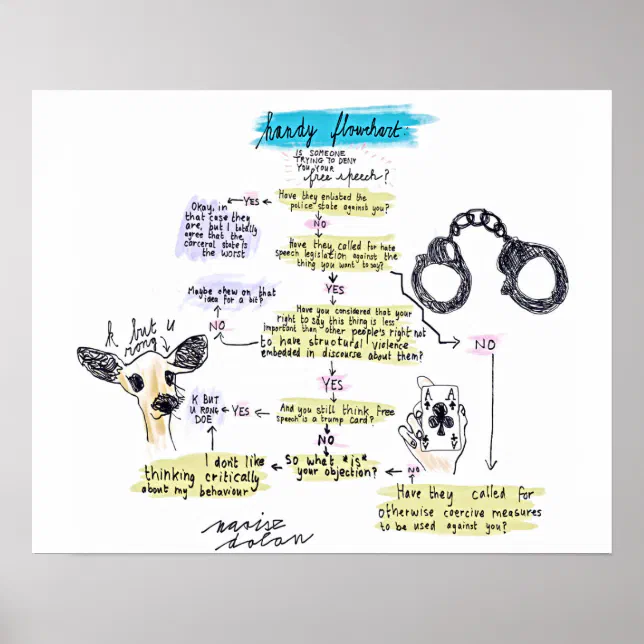 handy flowchart:
IS SOMEONE
TRYING TO DENY
YOU YOUR
free speech?
Have they enlisted the
police state against you?
YES
Okay, in
that case they
are, but I totally
agree that the
carceral state is
the worst
NO
Have they called for hate
speech legislation against the
thing you want to say?
YES
Maybe chew on that
idea for a bit?
Have you considered that your
right to say this thing is less
important than other people's right not
to have structural violence
embedded in discourse about them?
NO
NO
k but u
rong
YES
And you still think free
speech is a trump card?
YES
K BUT
U RONG
DOE
A A
A A
NO
So what *is*
your objection?
I don't like
thinking critically
about my behaviour
NO
Have they called for
otherwise coercive measures
to be used against you?
naoise
dolan